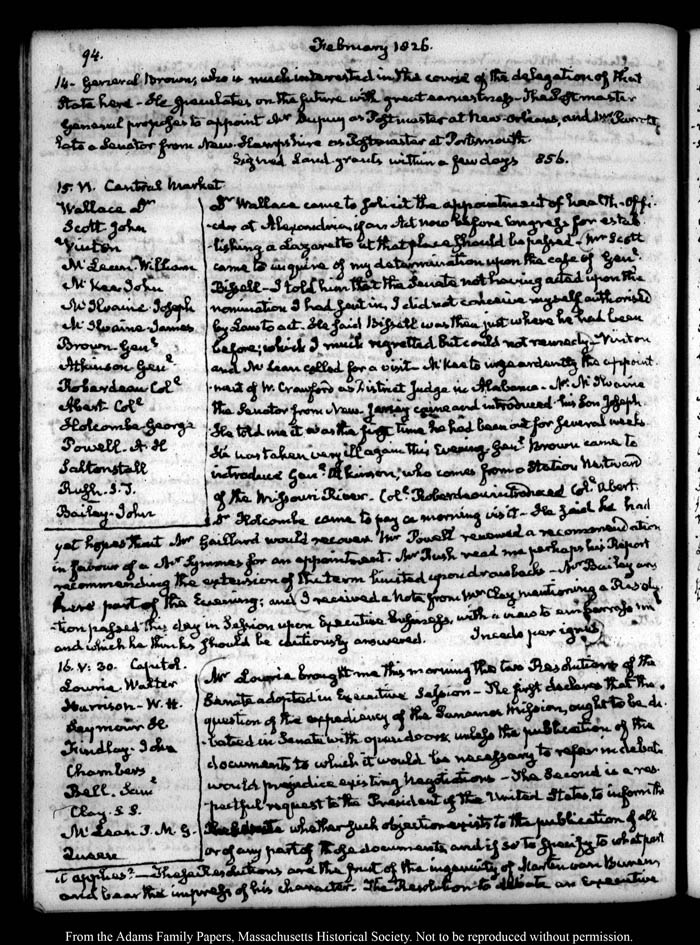 94.
February 1826.
14. General Brown, who is much interested in the course of the delegation of that
State here - He speculates on the future with great earnestness - The Postmaster
General proposes to appoint Mr Dupuy as Postmaster at New-Orleans, and Mr Parrott,
late a Senator from New Hampshire as Postmaster at Portsmouth.
Signed Land grants within a few days 856.
15. VI. Central Market
Wallace Dr
Scott John
Vinton
McLean. William
McKee John
McIlvaine Joseph
McIlvaine James
Brown Genl
Atkinson Genl
Roberdeau Col
Abert Col
Holcombe George
Powell. A H
Saltonstall
Rush. J.
Bailey John
Dr Wallace came to solicit the appointment of health-offi-
cer at Alexandria, if an Act now before Congress for estab-
lishing a Lazaretto at that place should be passed - Mr Scott
came to inquire of my determination upon the case of Genl
Bissell - I told him that the Senate not having acted upon the
nomination I had sent in, I did not conceive myself authorised
by Law to act. He said Bissell was then just where he had been
before; which I much regretted but could not remedy - Vinton
and McLean called for a visit - McKee to urge ardently the appoint-
ment of W. Crawford as District Judge in Alabama - Mr McIlvaine
the Senator from New Jersey came and introduced his Son Joseph.
He told me it was the first time he had been out for several weeks
He was taken very ill again this Evening Genl Brown came to
introduce Genl Atkinson, who comes from a Station Westward
of the Missouri River - Col. Roberdeau introduced Col. Abert.
Dr Holcombe came to pay a morning visit - He said he had
yet hopes that Mr Gaillard would recover. Mr Powell renewed a recommendation
in favour of a Mr Symmes for an appointment. Mr Rush read me perhaps his Report
recommending the extension of the term limited upon drawbacks - Mr Bailey was
here part of the Evening; and I received a Note from Mr Clay mentioning a Resolu-
tion passed this day in Session upon Executive business, with a view to embarrass me
and which he thinks should be cautiously answered. Incedo per ignes
16. V: 30. Capitol.
Lowrie Walter
Harrison - W. H.
Seymour H
Findlay. John
Chambers
Bell. Saml
Clay. S S.
McLean J. M G.
Quaere
Mr Lowrie brought me this morning the two Resolutions of the
Senate adopted in Executive Session - The first declares that the
question of the expediency of the Panama Mission, ought to be de-
bated in Senate with open doors, unless the publication of the
documents to which it would be necessary to refer in debate
would prejudice existing Negotiations - The Second is a res-
pectful request to the President of the United States, to inform the
Senate whether such objection exists to the publication of all
or of any part of those documents, and if so to specify to what part
it applies? - These Resolutions are the fruit of the ingenuity of Martin van Buren,
and bear the impress of his character. The Resolution to debate an Executive
From the Adams Family Papers, Massachusetts Historical Society. Not to be reproduced without permission.